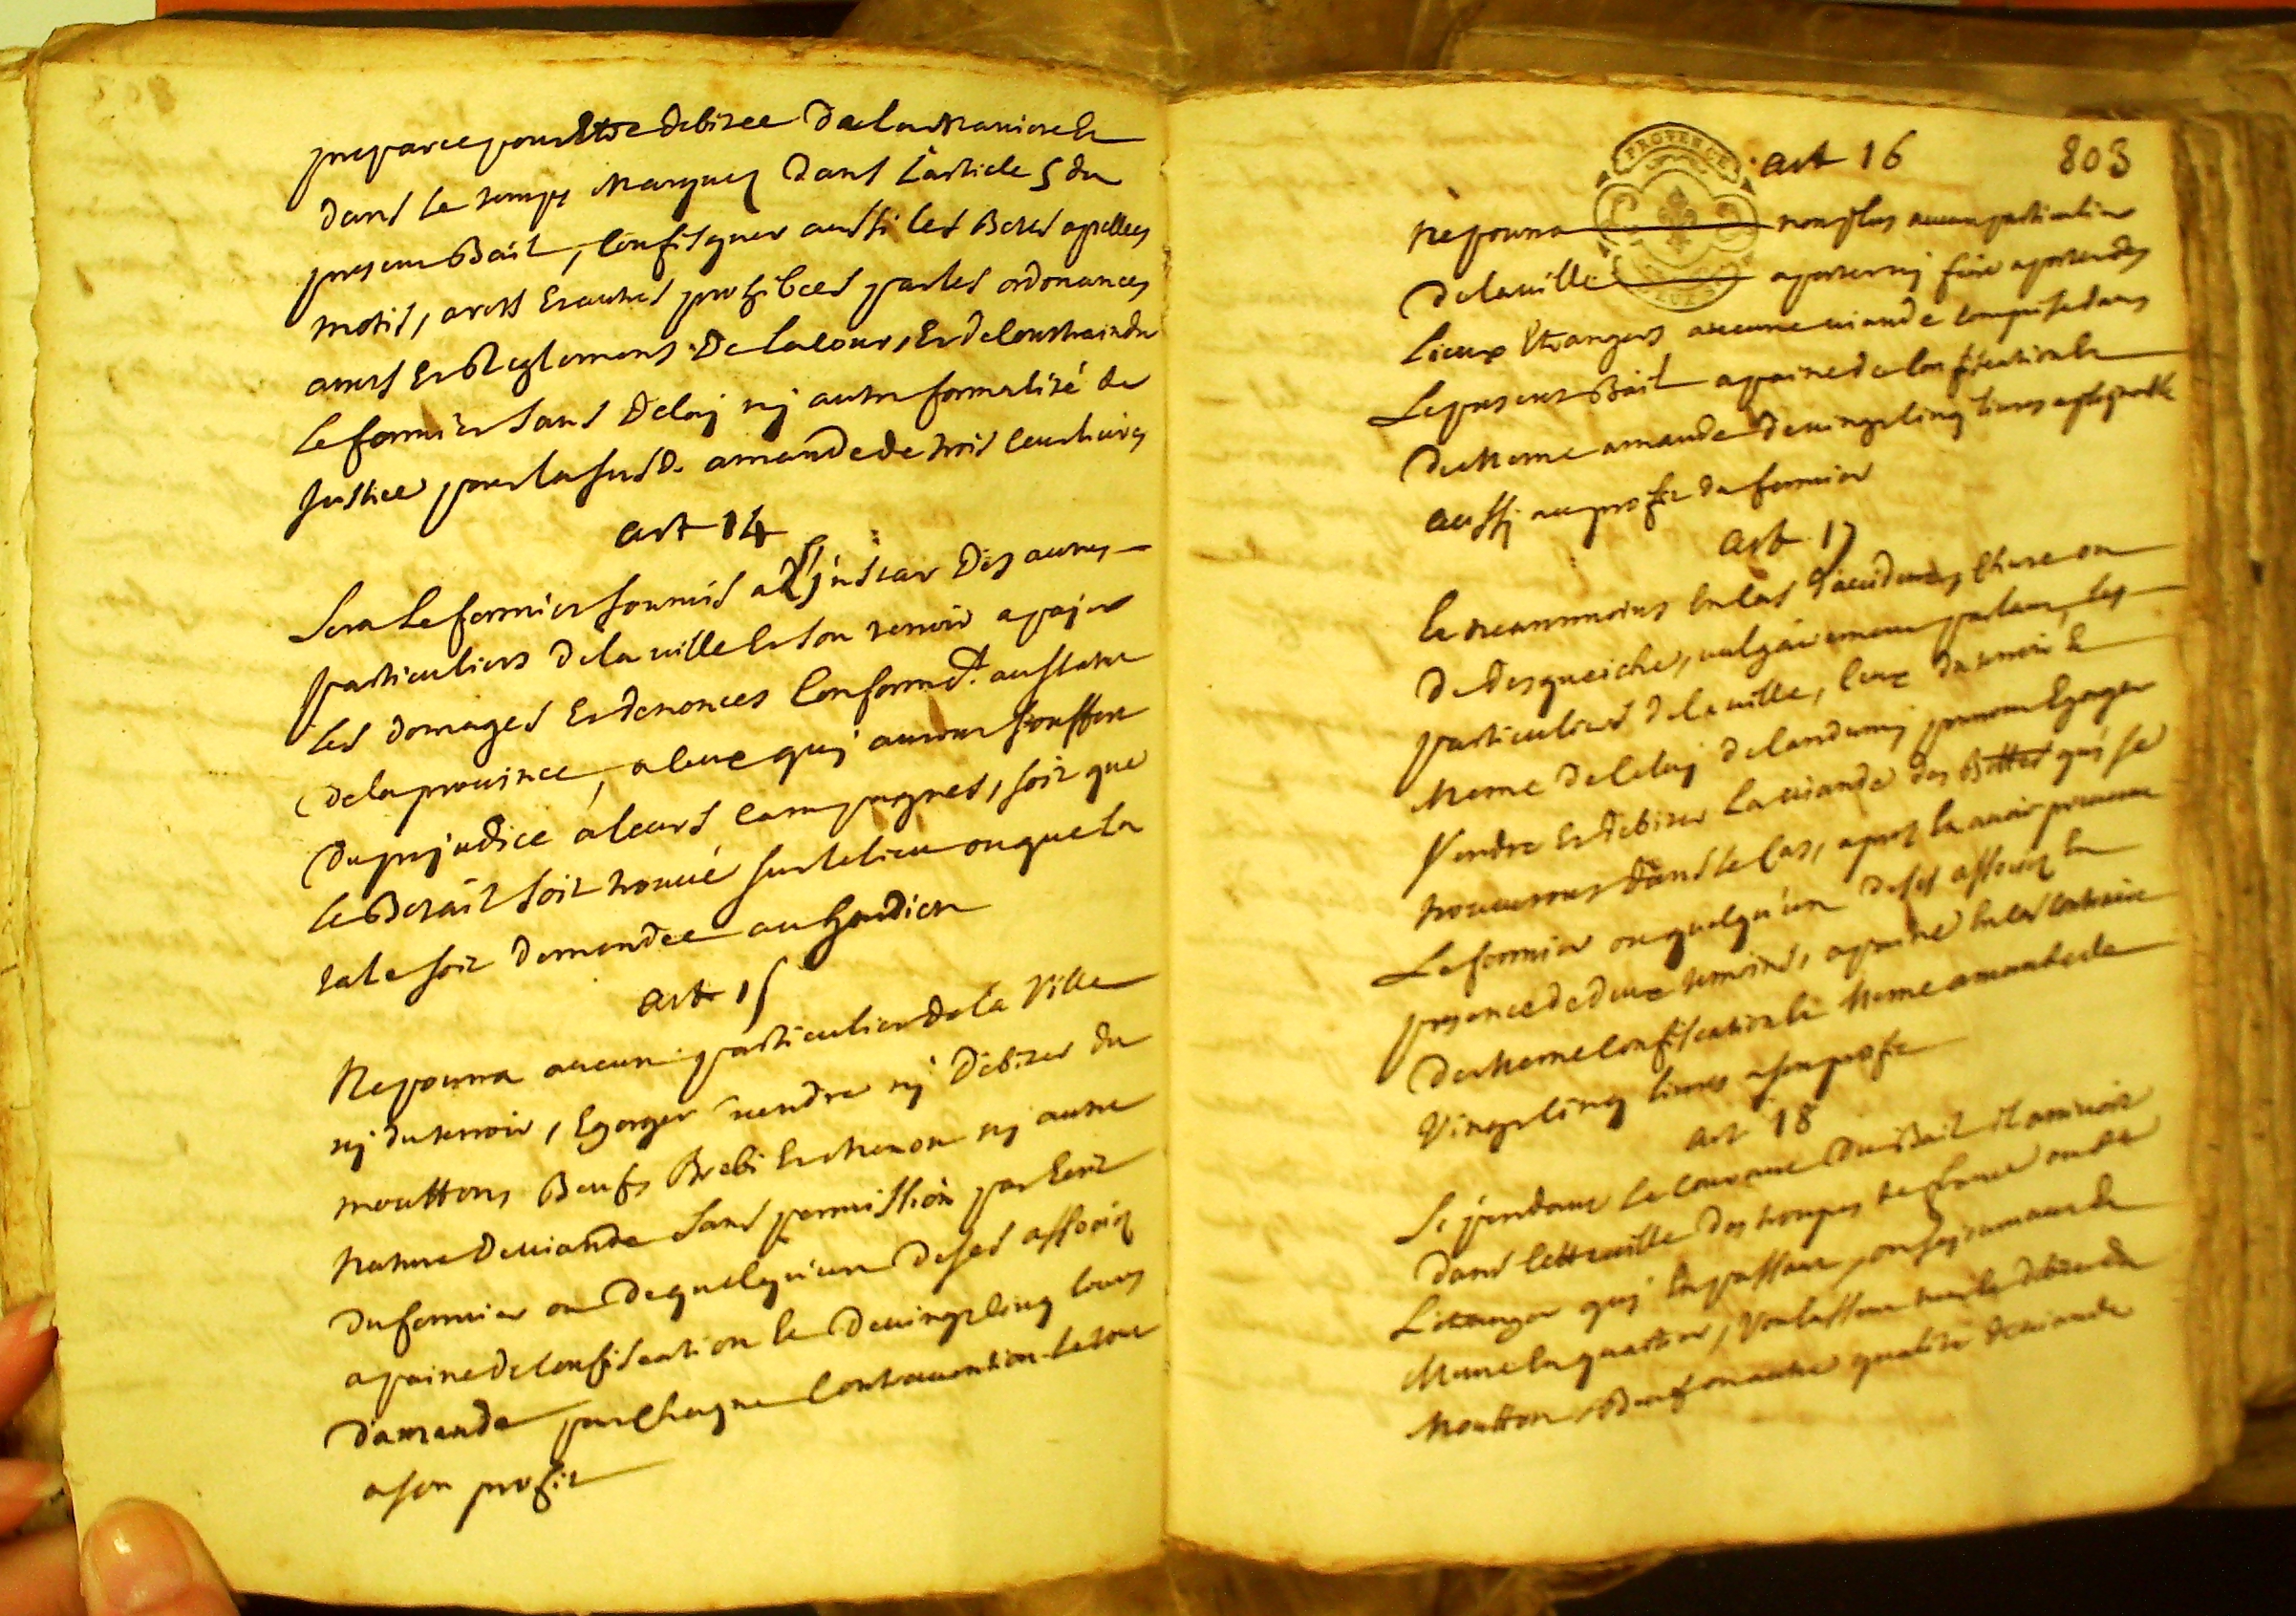 preparee pour Etre debitee de la Maniere Et
dans Le temps Marquez dans L'article 5 du
present Bail, Confisquer aussi les Betes apellees
motis, arets Et autres prohibees par les ordonances
arrets Et Reglements De la cour, Et de Contraindre
Le fermier Sans Delay ny autre formalité de
Justice pour la susd. amande de trois cent livres
art 14
Sera Le fermier soumis a L'instar Des autres
particuliers de la ville Et son terroir a payer
Les domages Et denonces Conformt. au statut
de la province, a ceux quj auront souffert
du prejudice a leurs Campagnes, soit que
le Betail soit trouvé sur le lieu ou que la
tale soit demandee au Gardien
art 15
Ne pourra aucun particulier de la Ville
nj du terroir, Egorger vendre nj Debiter du
mouttons Beufs Brebi Et Menon nj autre
Nature De viande Sans permission par Ecrit
Du fermier ou De quelqu'un De ses associez
a paine de Confiscation Et De vingt cinq livres
D'amande par Chaque Contravention Le tout
a son profit
803
PROVENCE
art 16
Ne pourra non plus aucun particulier
de la ville aporter nj faire aporter des
Lieux Etrangers aucune viande comprise dans
Le present Bail a paine de Confiscation Et
De Meme amande De vingt cinq livres aplicable
aussj au profit du fermier
art 17
Et neanmoins En Cas d'accident, Chute ou
De desqueiche, vulgairement parlant, les
particuliers de la ville, Ceux du terroir Et
Meme De Celuj de landumj pourront Egorger
Vendre Et debiter La viande des Bettes qui se
trouveront dans le Cas, apres En avoir prevenu
Le fermier ou quelqu'un De ses associez En
presence de deux temoins, a paine En Cas Contraire
De Meme Confiscation Et Meme amande de
Vingt cinq livres a son profit
art 18
Si pendant Le Courant Du Bail il arrivoit
Dans Cette ville Des troupes de france ou de
L'etranger quj En passant, ou sejournant de
Meme En quartier, Voulussent debiter de
Moutton, Beuf ou autre qualité de viande